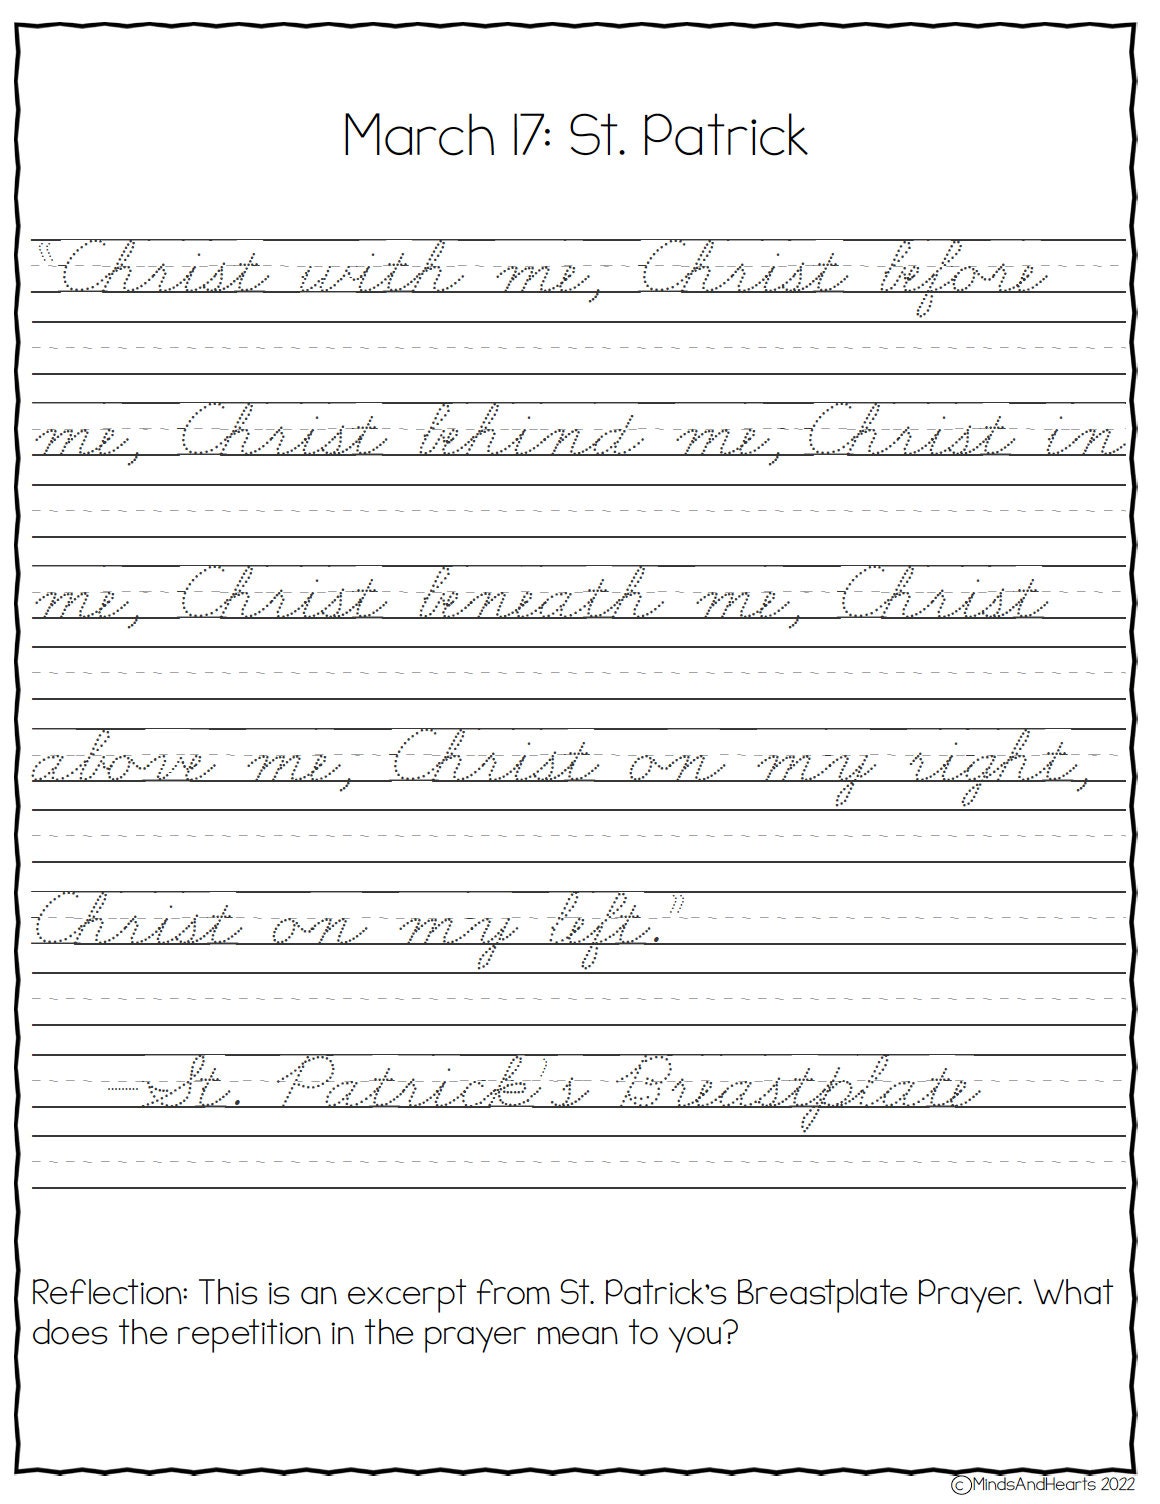 March 17: St. Patrick
"Christ with me, Christ before
me, Christ behind me, Christ in
me, Christ beneath me, Christ
above me, Christ on my right,
Christ on my left."
—St. Patrick's Breastplate
Reflection: This is an excerpt from St. Patrick's Breastplate Prayer. What
does the repetition in the prayer mean to you?
©MindsAndHearts 2022